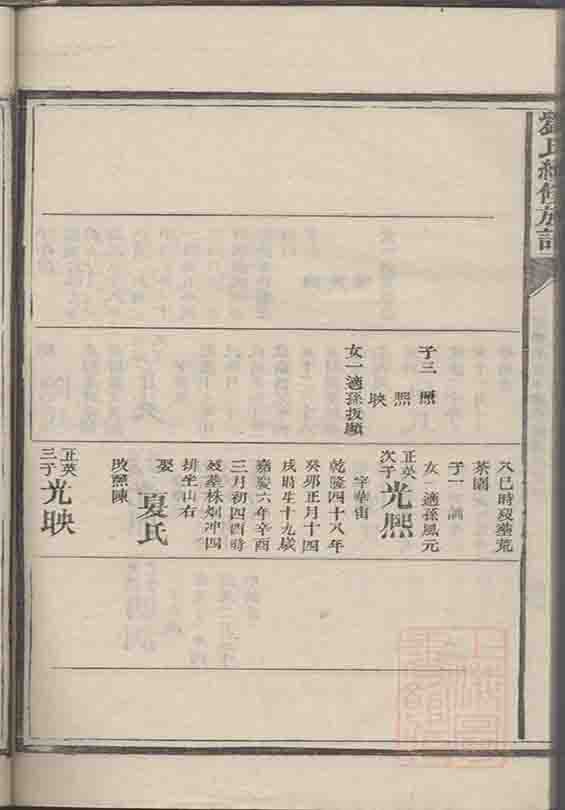 劉氏續修族譜
子三 熙
照
映
女一適孫拔顯
八巳時歿葬荒
茶園
子一
女一適孫風元
正英次子光熙
字華宙
乾隆四十八年
癸卯正月十四
戌時生十九歲
嘉慶六年辛酉
三月初四酉時
歿葬株烟冲四
排坐山右
娶夏氏
改蕉陳
正英三子光映